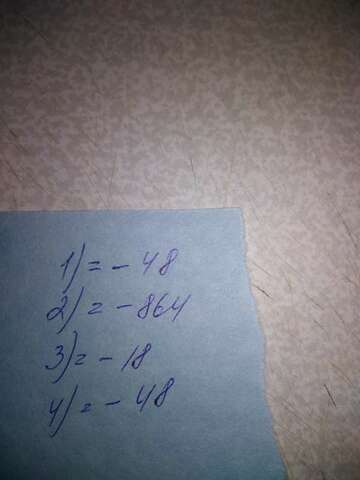 1) = - 48
2) = - 864
3) = - 18
4) = - 48